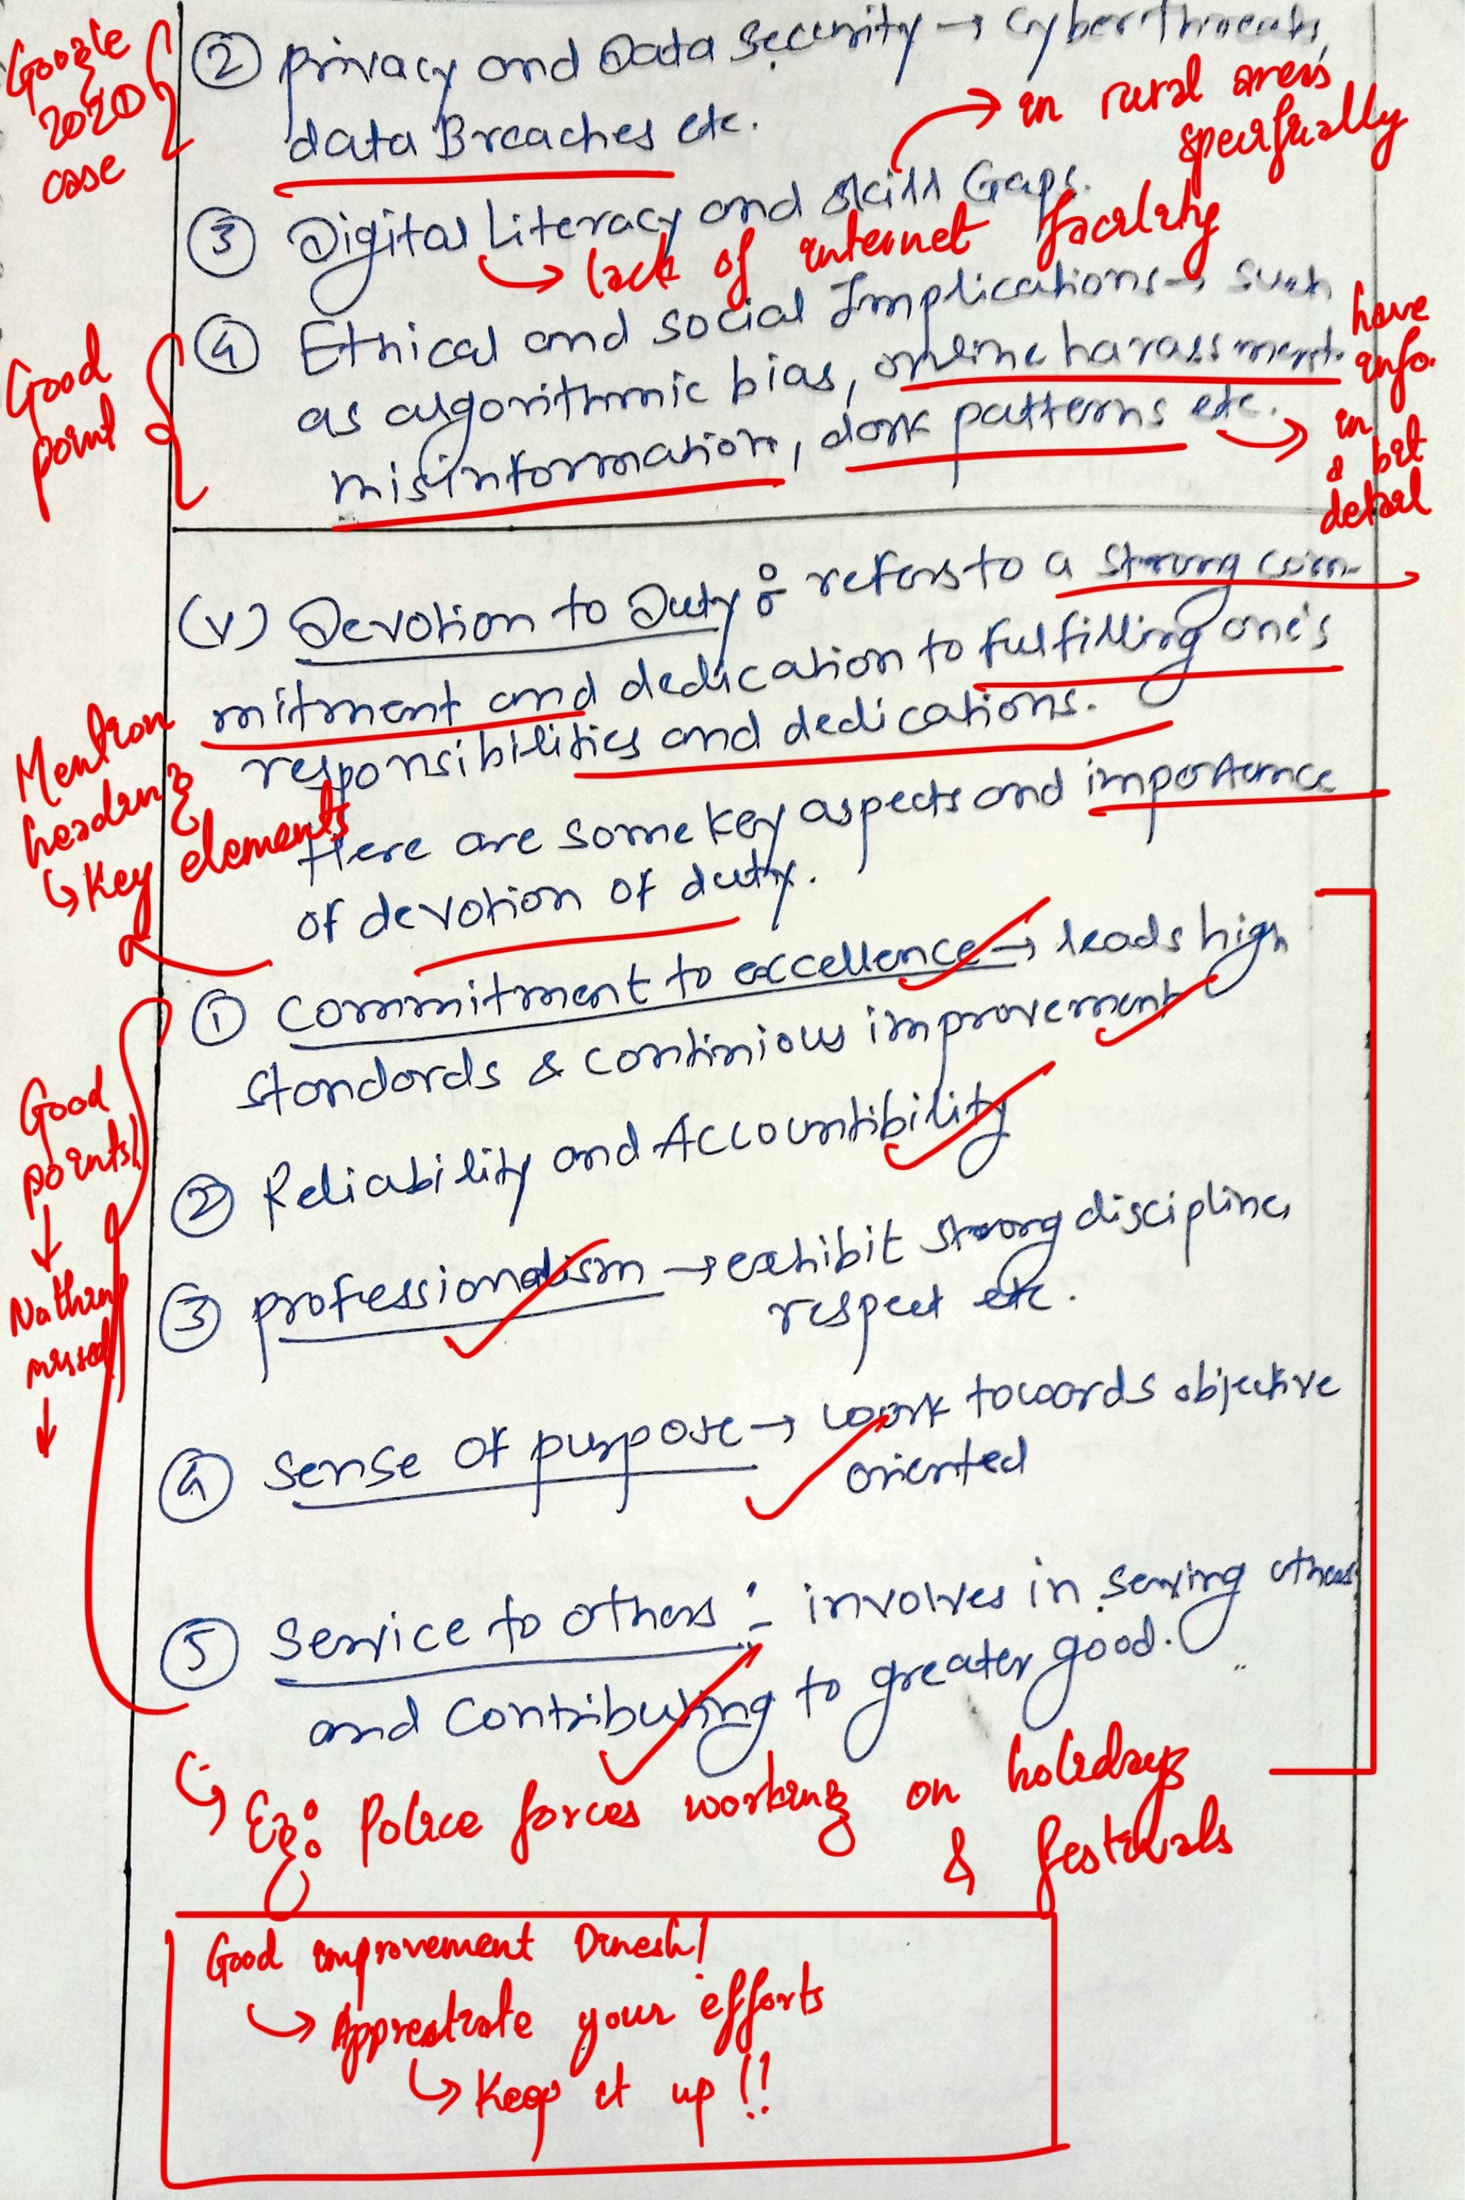 Google
2020
case
② privacy and Data Security → Cyberthreats,
data Breaches etc.
→ in rural areas
specifically
③ Digital Literacy and skill Gaps.
→ lack of internet facility
Good
point
④ Ethical and social Implications → such
as algorithmic bias, online harassment.
misinformation, dark patterns etc.
→ have
info.
in
a bit
detail
(v) Devotion to Duty : refers to a strong com-
mitment and dedication to fulfilling one's
responsibilities and dedications.
Here are some key aspects and importance
of devotion of duty.
Mention
heading
↳ Key elements
① Commitment to excellence → leads high
standards & continious improvement
② Reliability and Accountibility
③ professionalism → exhibit strong discipline,
respect etc.
④ Sense of purpose → work towards objective
oriented
⑤ Service to others :- involves in serving others
and contributing to greater good.
Good
points!
↓
Nothing
missed
↓
↳ Eg: Police forces working on holidays
& festivals
Good improvement Dinesh!
↳ Appreatiate your efforts
↳ Keep it up !!